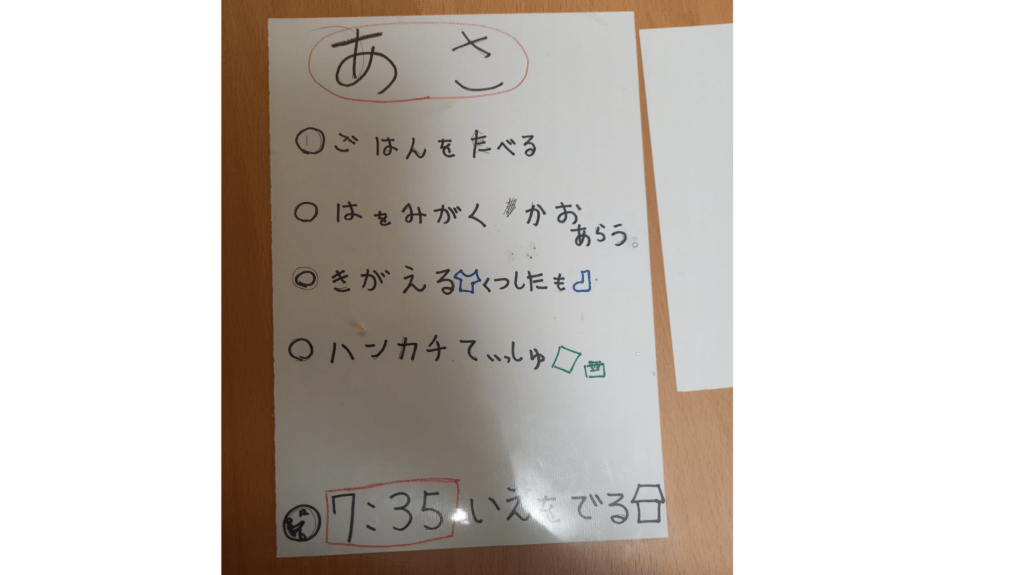 あさ
○ ごはんをたべる
○ はをみがく かお
あらう。
○ きがえる くつしたも
○ ハンカチ てぃっしゅ
7:35 いえをでる